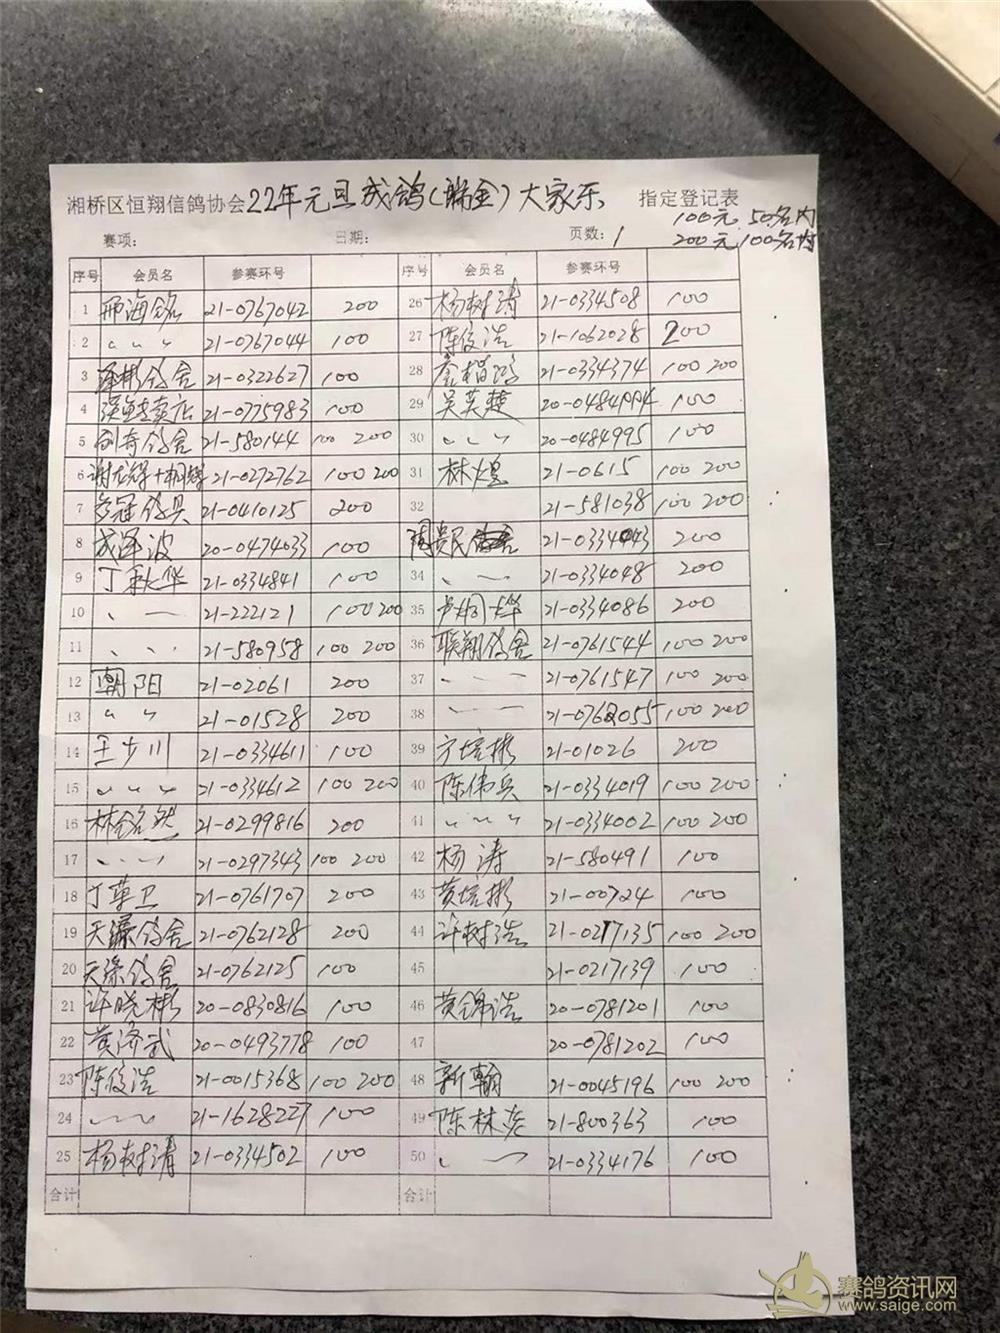 湘桥区恒翔信鸽协会22年元旦成鸽(瑞金)大家乐 指定登记表
赛项: 日期: 页数:1 100元 50名内
200元 100名内
序号 会员名 参赛环号 序号 会员名 参赛环号
1 邢海铭 21-0767042 200 26 杨树涛 21-0334508 100
2 〃 〃 21-0767044 100 27 陈俊浩 21-1062028 200
3 泽彬鸽舍 21-0322627 100 28 21-0334374 100 200
4 21-0775983 100 29 吴英楚 20-0484994 100
5 创奇鸽舍 21-580144 100 200 30 〃 〃 20-0484995 100
6 21-0272762 100 200 31 林煌 21-0615 100 200
7 冠鸽具 21-0410125 200 32 21-581038 100 200
8 成泽波 20-0474033 100 21-0334043 200
9 丁秋华 21-0334841 100 34 〃 〃 21-0334048 200
10 〃 〃 21-222121 100 200 35 卢炯烨 21-0334086 200
11 〃 〃 21-580958 100 200 36 联翔鸽舍 21-0761544 100 200
12 朝阳 21-02061 200 37 〃 〃 21-0761547 100 200
13 〃 〃 21-01528 200 38 〃 〃 21-0762055 100 200
14 王少川 21-0334611 100 39 方培彬 21-01026 200
15 〃 〃 21-0334612 100 200 40 陈伟兵 21-0334019 100 200
16 林铭然 21-0299816 200 41 〃 〃 21-0334002 100 200
17 〃 〃 21-0297343 100 200 42 杨涛 21-580491 100
18 丁草卫 21-0761707 200 43 黄培彬 21-00724 100
19 天缘鸽舍 21-0762128 200 44 许树浩 21-0217135 100 200
20 天缘鸽舍 21-0762125 100 45 21-0217139 100
21 许晓彬 20-0830816 100 46 黄锦浩 20-0781201 100
22 黄济武 20-0493778 100 47 20-0781202 100
23 陈俊浩 21-0015368 100 200 48 新翰 21-0045196 100 200
24 〃 〃 21-1628227 100 49 陈林 21-800363 100
25 杨树涛 21-0334502 100 50 〃 〃 21-0334176 100
合计 合计
赛鸽资讯网
www.saige.com